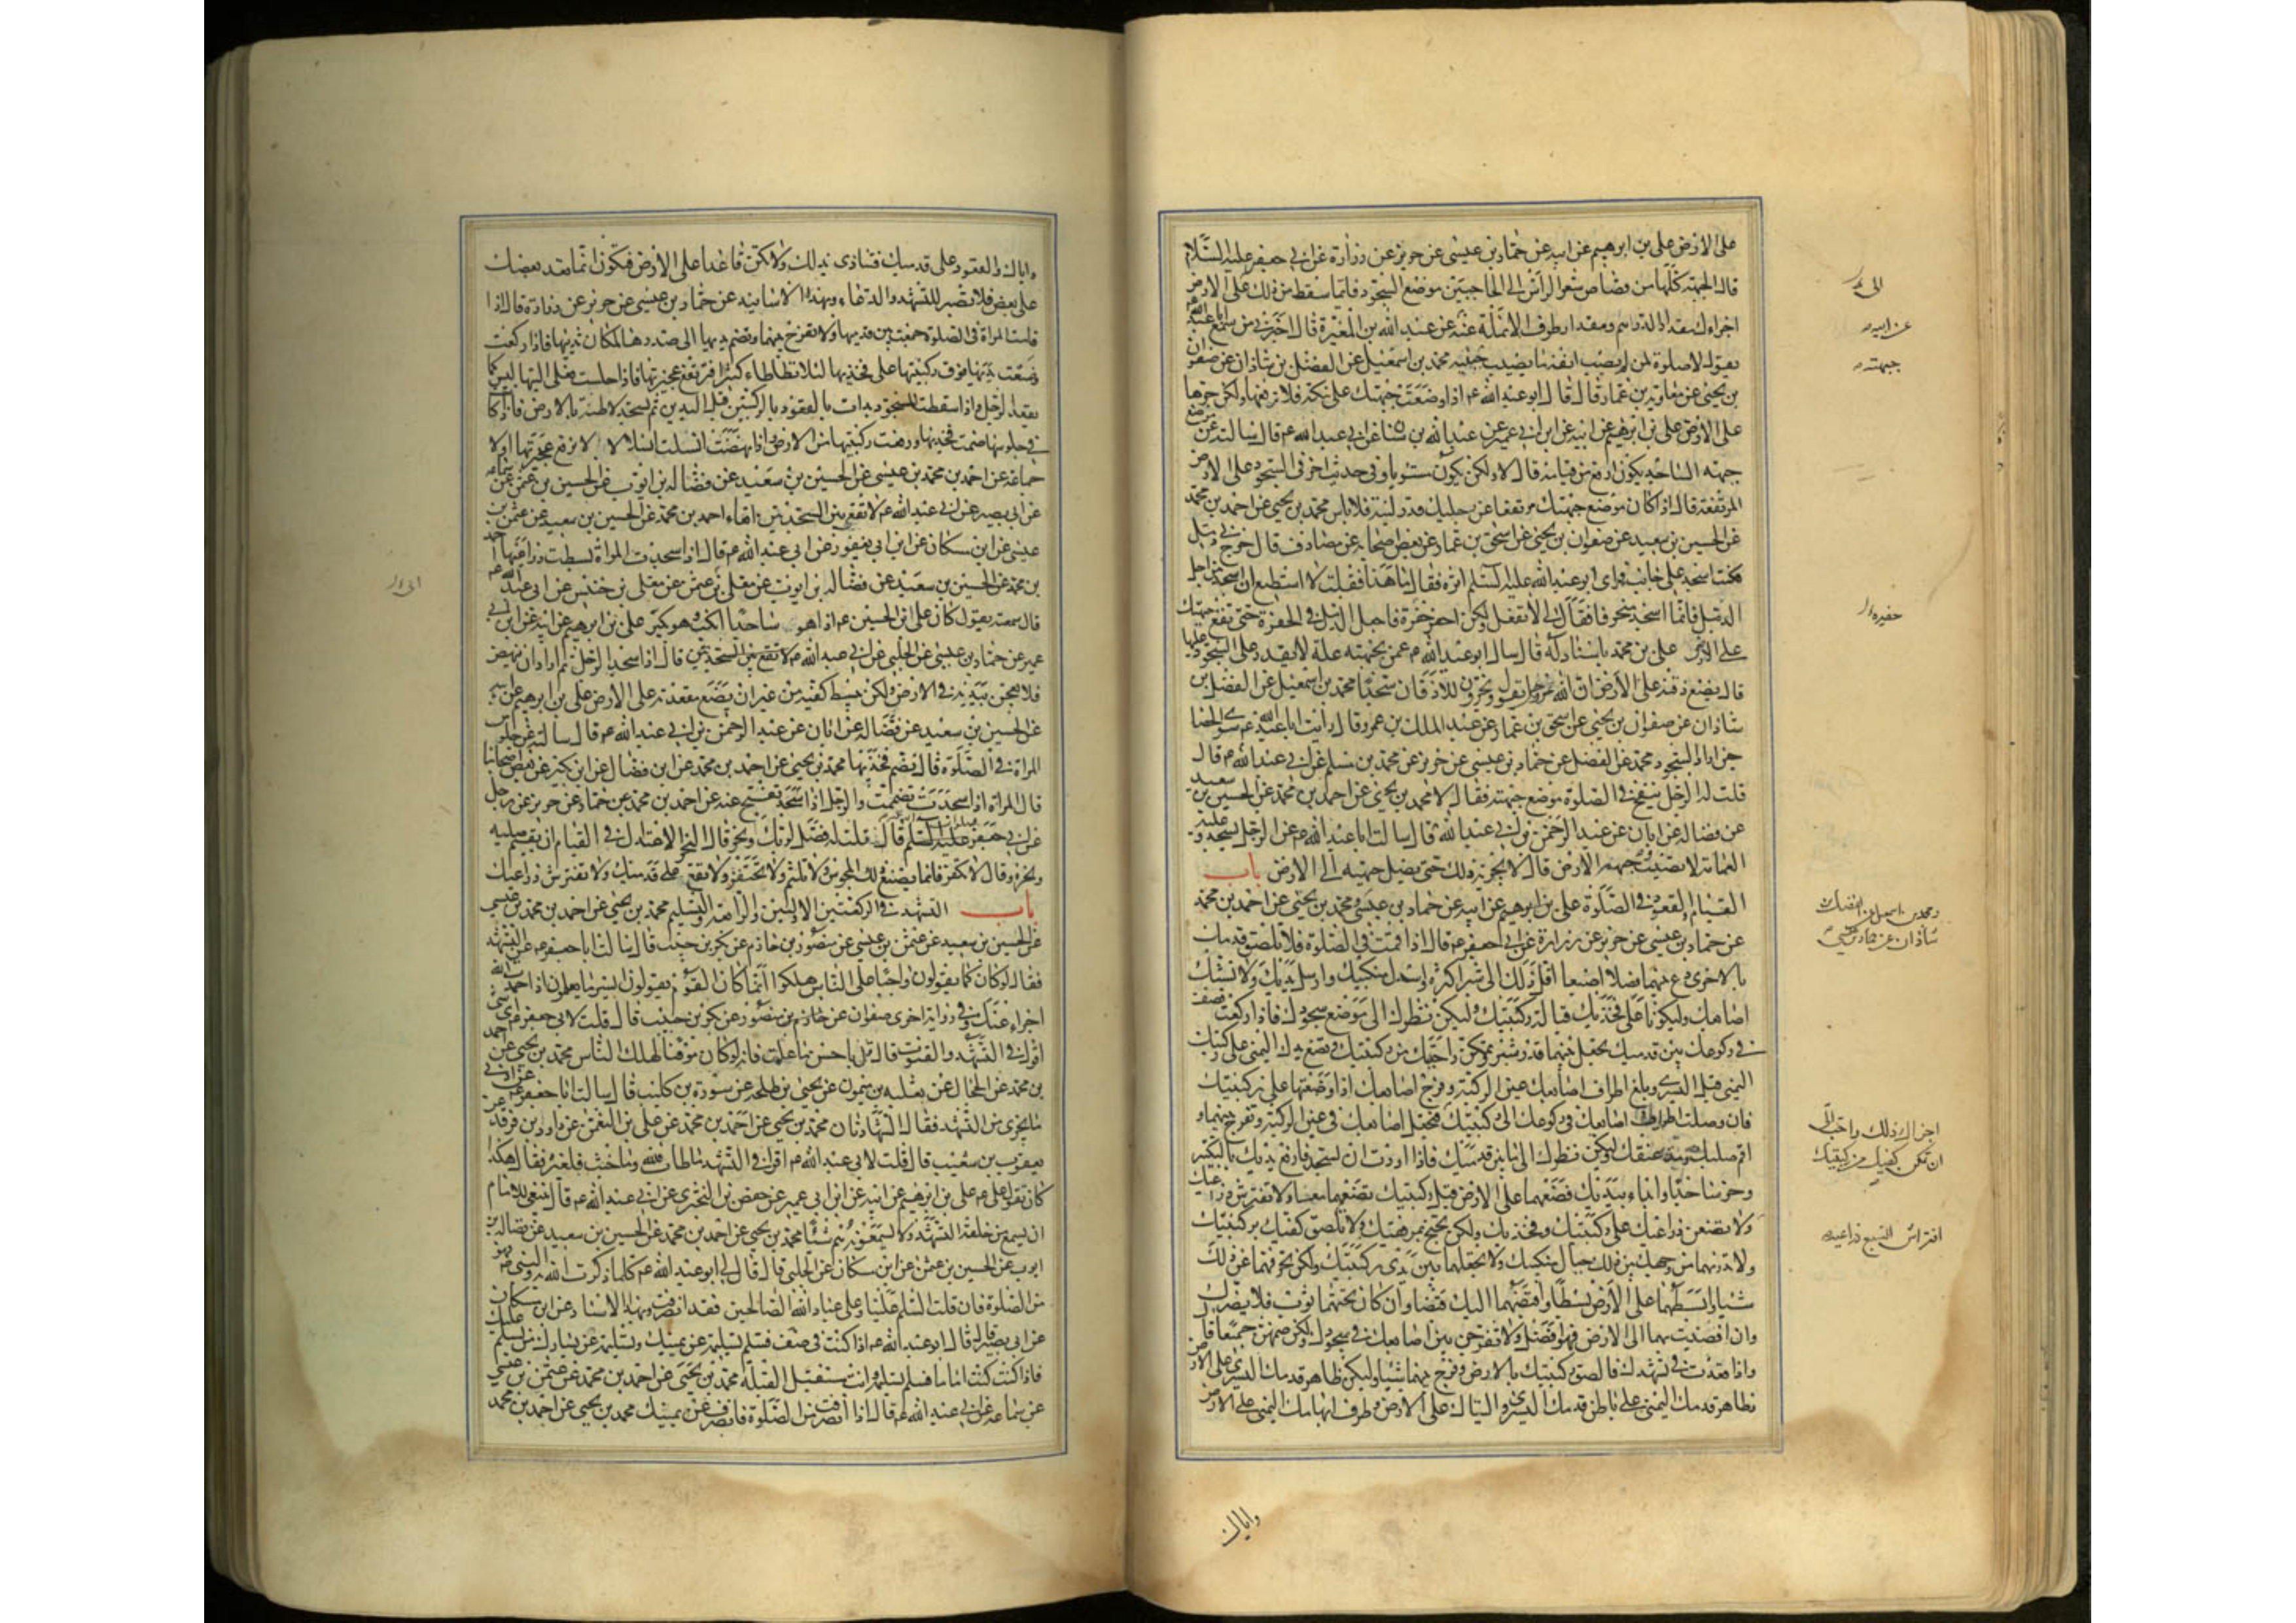 على الارض علي بن ابرهيم عن ابيه عن حماد بن عيسى عن حريز عن زرارة عن ابي جعفر عليه السلام
قال الجبهة كلها من قصاص شعر الراس الى الحاجبين موضع السجود فايما سقط من ذلك على الارض
اجزاءك مقدار الدرهم ومقدار طرف الانملة عنه عن عبد الله بن المغيرة قال اخبرني من سمع ابا عبد الله عم
يقول لا صلوة لمن لم يصب انفه ما يصيب جبينه محمد بن اسمعيل عن الفضل بن شاذان عن صفوان
بن يحيى عن معاوية بن عمار قال قال ابو عبد الله عم اذا وضعت جبهتك على نبكة فلا ترفعها ولكن جرها
على الارض علي بن ابرهيم عن ابيه عن ابن ابي عمير عن عبد الله بن سنان عن ابي عبد الله عم قال سالته عن موضع
جبهة الساجد يكون ارفع من قيامه قال لا ولكن يكون مستويا وفي حديث اخر في السجود على الارض
المرتفعة قال اذا كان موضع جبهتك مرتفعا عن رجليك قدر لبنة فلا باس محمد بن يحيى عن احمد بن محمد
عن الحسين بن سعيد عن صفوان بن يحيى عن اسحق بن عمار عن بعض اصحابه عن مصادف قال خرج بي دمل
فكنت اسجد على جانب فراى ابو عبد الله عليه السلم اثره فقال ما هذا فقلت لا استطيع ان اسجد من اجل
الدمل فانما اسجد منحرفا فقال لي لا تفعل ولكن احفر حفرة فاجعل الدمل في الحفرة حتى تقع جبهتك
على الارض علي بن محمد باسناد له قال سال ابو عبد الله عم عمن بجبهته علة لا يقدر على السجود عليها
قال يضع ذقنه على الارض ان الله عز وجل يقول ويخرون للاذقان سجدا محمد بن اسمعيل عن الفضل بن
شاذان عن صفوان بن يحيى عن اسحق بن عمار عن عبد الملك بن عمرو قال رايت ابا عبد الله عم سوى الحصا
حين اراد السجود محمد عن الفضل عن حماد بن عيسى عن حريز عن محمد بن مسلم عن ابي عبد الله عم قال
قلت له الرجل ينفخ في الصلوة موضع جبهته فقال لا محمد بن يحيى عن احمد بن محمد عن الحسين بن سعيد
عن فضالة عن ابان عن عبد الرحمن بن ابي عبد الله قال سالت ابا عبد الله عم عن الرجل يسجد وعليه
العمامة لا تصيب جبهته الارض قال لا يجزيه ذلك حتى تصل جبهته الى الارض باب
القيام والقعود في الصلوة علي بن ابرهيم عن ابيه عن حماد بن عيسى ومحمد بن يحيى عن احمد بن محمد
عن حماد بن عيسى عن حريز عن زرارة عن ابي جعفر عم قال اذا قمت في الصلوة فلا تلصق قدمك
بالاخرى دع بينهما فصلا اصبعا اقل ذلك الى شبر اكثره واسدل منكبيك وارسل يديك ولا تشبك
اصابعك وليكونا على فخذيك قبالة ركبتيك وليكن نظرك الى موضع سجودك فاذا ركعت فصف
في ركوعك بين قدميك تجعل بينهما قدر شبر وتمكن راحتيك من ركبتيك وتضع يدك اليمنى على ركبتك
اليمنى قبل اليسرى وبلغ اطراف اصابعك عين الركبة وفرج اصابعك اذا وضعتها على ركبتيك
فان وصلت اطراف اصابعك في ركوعك الى ركبتيك فتجعل اصابعك في عين الركبة وتفرج بينهما و
اقم صلبك ومد عنقك وليكن نظرك الى ما بين قدميك فاذا اردت ان تسجد فارفع يديك بالتكبير
وخر ساجدا وابداء بيديك فضعهما على الارض قبل ركبتيك تضعهما معا ولا تفترش ذراعيك
ولا تضعن ذراعيك على ركبتيك وفخذيك ولكن تجنح بمرفقيك ولا تلصق كفيك بركبتيك
ولا تدنهما من وجهك بين ذلك حيال منكبيك ولا تجعلهما بين يدي ركبتيك ولكن تحرفهما عن ذلك
شيئا وابسطهما على الارض بسطا واقبضهما اليك قبضا وان كان تحتهما ثوب فلا يضرك
وان افضيت بهما الى الارض فهو افضل ولا تفرجن بين اصابعك في سجودك ولكن ضمهن جميعا قال
واذا قعدت في تشهدك فالصق ركبتيك بالارض وفرج بينهما شيئا وليكن ظاهر قدمك اليسرى على الارض
وظاهر قدمك اليمنى على باطن قدمك اليسرى واليتاك على الارض وطرف ابهامك اليمنى على الارض
واياك
عن ابيه
جبهته
حفيرة
ومحمد بن اسمعيل عن الفضل بن
شاذان عن حماد بن عيسى
اجزاك ذلك واحب الي
ان تمكن كفيك من ركبتيك
افتراش السبع ذراعيه
واياك والقعود على قدميك فتتاذى بذلك ولا تكن قاعدا على الارض فتكون انما قعد بعضك
على بعض فلا تصبر للتشهد والدعاء وبهذا الاسانيد عن حماد بن عيسى عن حريز عن زرارة قال اذا
قامت المراة في الصلوة جمعت بين قدميها ولا تفرج بينهما وتضم يديها الى صدرها لمكان ثدييها فاذا ركعت
وضعت يديها فوق ركبتيها على فخذيها لئلا تطاطاء كثيرا فترتفع عجيزتها فاذا جلست فعلى اليتيها ليس كما
يقعد الرجل واذا سقطت للسجود بدات بالقعود بالركبتين قبل اليدين ثم تسجد لاطئة بالارض فاذا كا
في جلوسها ضمت فخذيها ورفعت ركبتيها من الارض واذا نهضت انسلت انسلالا لا ترفع عجيزتها اولا
جماعة عن احمد بن محمد بن عيسى عن الحسين بن سعيد عن فضالة بن ايوب عن الحسين بن عثمن عن سماعه
عن ابي بصير عن ابي عبد الله عم لا تقع بين السجدتين اقعاء احمد بن محمد عن الحسين بن سعيد عن عثمن بن
عيسى عن ابن مسكان عن ابن ابي يعفور عن ابي عبد الله عم قال اذا سجدت المراة بسطت ذراعيها احمد
بن محمد عن الحسين بن سعيد عن فضالة بن ايوب عن معلى بن عثمن عن معلى بن خنيس عن ابي عبد الله عم
قال سمعته يقول كان علي ابن الحسين عم اذا هو ساجدا انكب وهو يكبر علي بن ابرهيم عن ابيه عن ابن ابي
عمير عن حماد بن عيسى عن الحلبي عن ابي عبد الله عم لا تقع بين السجدتين قال اذا سجد الرجل ثم اراد ان ينهض
فلا يعجن بيديه في الارض ولكن يبسط كفيه من غير ان يضع مقعدته على الارض علي بن ابرهيم عن ابيه
عن الحسين بن سعيد عن فضالة عن ابان عن عبد الرحمن بن ابي عبد الله عم قال سالته عن جلوس
المراة في الصلوة قال تضم فخذيها محمد بن يحيى عن احمد بن محمد عن ابن فضال عن ابن بكير عن بعض اصحابنا
قال المراة اذا سجدت تضممت والرجل اذا سجد تفتح عنه عن احمد بن محمد عن حماد عن حريز عن رجل
عن ابي جعفر عليه السلم قال قلت له فصل لربك وانحر قال النحر الاعتدال في القيام ان يقيم صلبه
ونحره وقال لا تكفر فانما يصنع ذلك المجوس ولا تلثم ولا تحتفز ولا تقع على قدميك ولا تفترش ذراعيك
باب التشهد في الركعتين الاولتين والرابعة والتسليم محمد بن يحيى عن احمد بن محمد بن عيسى
عن الحسين بن سعيد عن عثمن بن عيسى عن منصور بن حازم عن بكر بن حبيب قال سالت ابا جعفر عم عن التشهد
فقال لو كان كما يقولون واجبا على الناس هلكوا انما كان القوم يقولون ايسر ما يعلمون اذا حمدت الله
اجزاء عنك وفي رواية اخرى صفوان عن منصور عن بكر بن حبيب قال قلت لابي جعفر عم اي شئ
اقول في التشهد والقنوت قال قل باحسن ما علمت فانه لو كان موقتا لهلك الناس محمد بن يحيى عن احمد
بن محمد عن الحجال عن ثعلبة بن ميمون عن يحيى بن طلحة عن سورة بن كليب قال سالت ابا جعفر عم عن ادنى
ما يجزي من التشهد فقال الشهادتان محمد بن يحيى عن احمد بن محمد عن علي بن النعمن عن داود بن فرقد عن
يعقوب بن شعيب قال قلت لابي عبد الله عم اقراء في التشهد ما طاب فلله وما خبث فلغيره فقال هكذا
كان يقول علي عم علي بن ابرهيم عن ابيه عن ابن ابي عمير عن حفص بن البختري عن ابي عبد الله عم قال ينبغي للامام
ان يسمع من خلفه التشهد ولا يسمعونه هم شيئا محمد بن يحيى عن احمد بن محمد عن الحسين بن سعيد عن فضالة بن
ايوب عن الحسين بن عثمن عن ابن مسكان عن الحلبي قال قال لي ابو عبد الله عم كلما ذكرت الله والنبي ص فهو
من الصلوة فان قلت السلم علينا وعلى عباد الله الصالحين فقد انصرفت وبهذا الاسناد عن ابن مسكان
عن ابي بصير قال قال ابو عبد الله عم اذا كنت في صف فسلم تسليمة عن يمينك وتسليمة عن يسارك
فاذا كنت اماما فسلم تسليمة وانت مستقبل القبلة محمد بن يحيى عن احمد بن محمد عن عثمن بن عيسى
عن سماعة عن ابي عبد الله عم قال اذا انصرفت من الصلوة فانصرف عن يمينك محمد بن يحيى عن احمد بن محمد